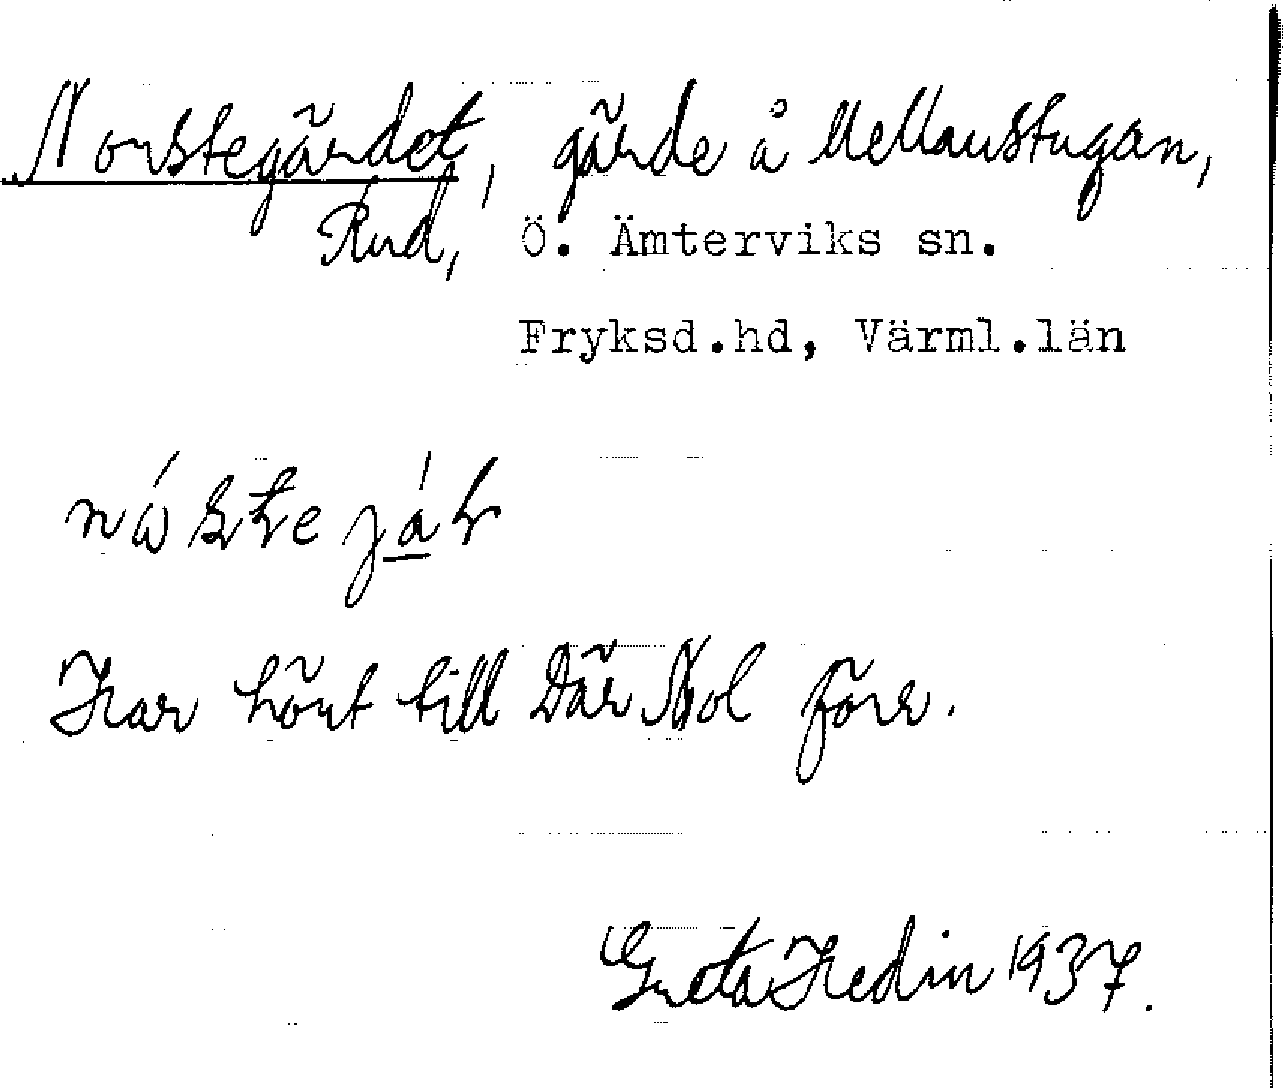 Norstegärdet, gärde å Mellanstugan,
Rud, Ö. Ämterviks sn.
Fryksd.hd, Värml.län
Har hört till Där Nol förr.
Greta Hedin 1937.